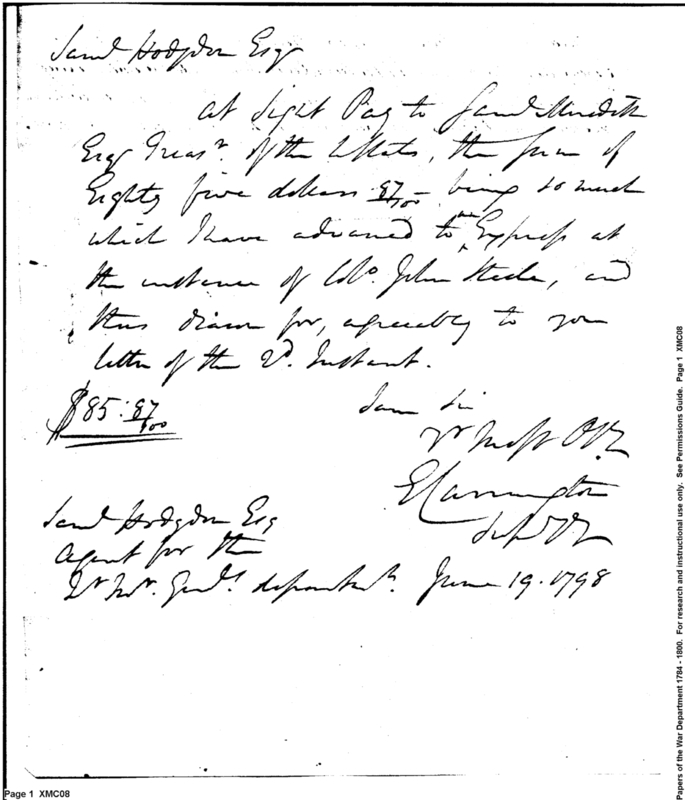 Saml Hodgdon Esqr
at Sight Pay to Saml Meredith
Esqr Treasr. of the UStates, the sum of
Eighty five dollars 87/100 - being so much
which I have advanced to an Express at
the instance of Colo. John Steele, and
thus drawn for, agreeably to your
letter of the 2d. Instant.
$85:87/100
I am Sir
Yr Most Ob.
E Carrington
Saml Hodgdon Esq
Agent for the
Qr Mr. Genls. departmt. June 19. 1798
Page 1 XMC08
Papers of the War Department 1784 - 1800. For research and instructional use only. See Permissions Guide. Page 1 XMC08